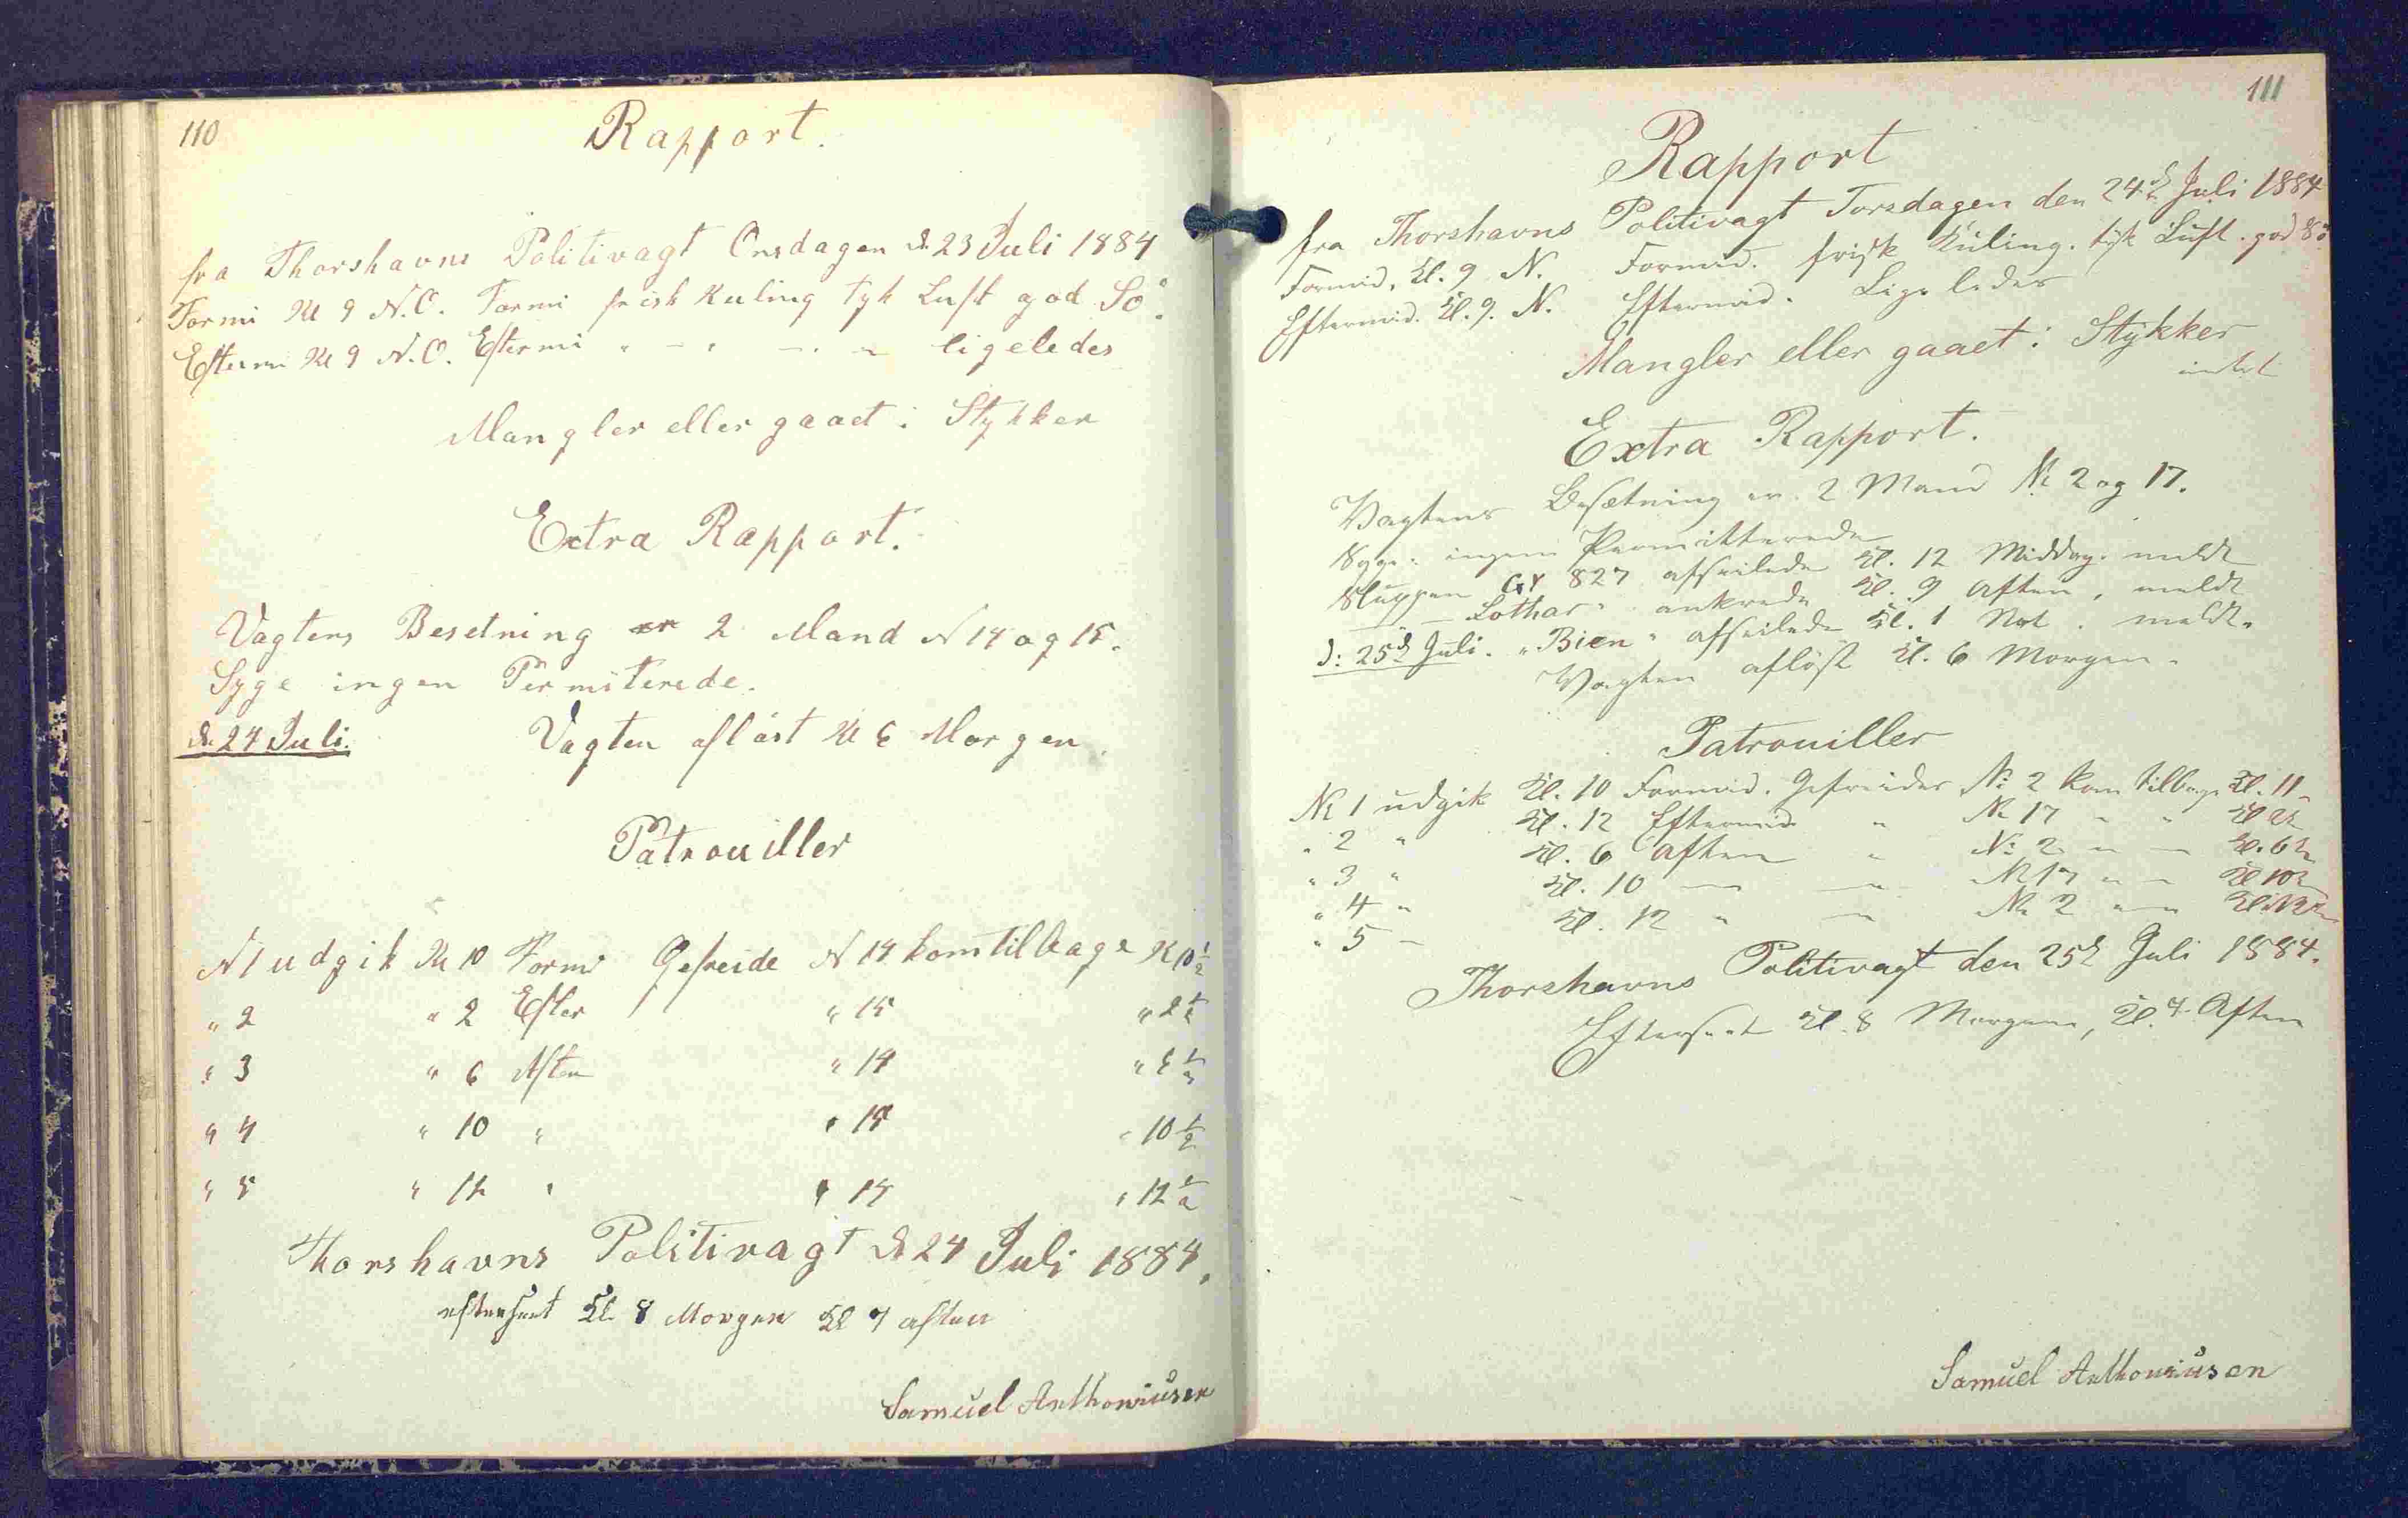 110
Rapport.
fra Thorshavns Politivagt Onsdagen d. 23 Juli 1884
Formi Kl 9 N.O. Formi frisk Kuling tyk Luft god Sö.
Efterm Kl 9 N.O. Eftermi " – " – " – ligeledes
Mangler eller gaaet i Stykker
Extra Rapport.
Vagtens Besetning er 2 Mand N 14 og 15.
Syge ingen Permiterede.
d. 24 Juli. Vagten aflöst Kl 6 Morgen.
Patrouiller
N 1 udgik Kl 10 Formi Gefreide N 14 kom tilbage Kl 10 1/2
" 2 " 2 Efter " 15 " 2 1/2
" 3 " 6 Aften " 14 " 6 1/2
" 4 " 10 " " 15 " 10 1/2
" 5 " 12 " " 14 " 12 1/2
Thorshavns Politivagt d. 24 Juli 1884.
efterseet Kl. 8 Morgen Kl 7 aften
Samuel Anthoniusen
111
Rapport
fra Thorshavns Politivagt Torsdagen den 24d Juli 1884
Formid. Kl. 9 N. Formid. frisk Kuling. tyk Luft. god Sö.
Eftermid. Kl. 9. N. Eftermid. Ligeledes
Mangler eller gaaet i Stykker
intet
Extra Rapport.
Vagtens Besætning er. 2 Mand № 2 og 17.
Syge: ingen Permitterede
Sluppen GY 827 afseilede Kl. 12 Middag. meldt
— — Lothar" ankrede Kl. 9 Aften, meldt
d: 25d Juli. "Bien" afseilede Kl. 1 Nat. meldt.
Vagten aflöst Kl. 6 Morgen.
Patrouiller
№ 1 udgik Kl. 10 Formid. Gefreider №: 2 kom tilbage Kl. 11
" 2 " Kl. 12 Eftermid " № 17 " "
" 3 " Kl. 6 Aften " №: 2 " — Kl. 6 1/2
" 4 " Kl. 10 — — № 17 " — Kl 10 1/2
" 5 — Kl. 12 " — № 2 — "
Thorshavns Politivagt den 25d Juli 1884.
Efterseet Kl. 8 Morgen, Kl. 7. Aften
Samuel Anthoniusen